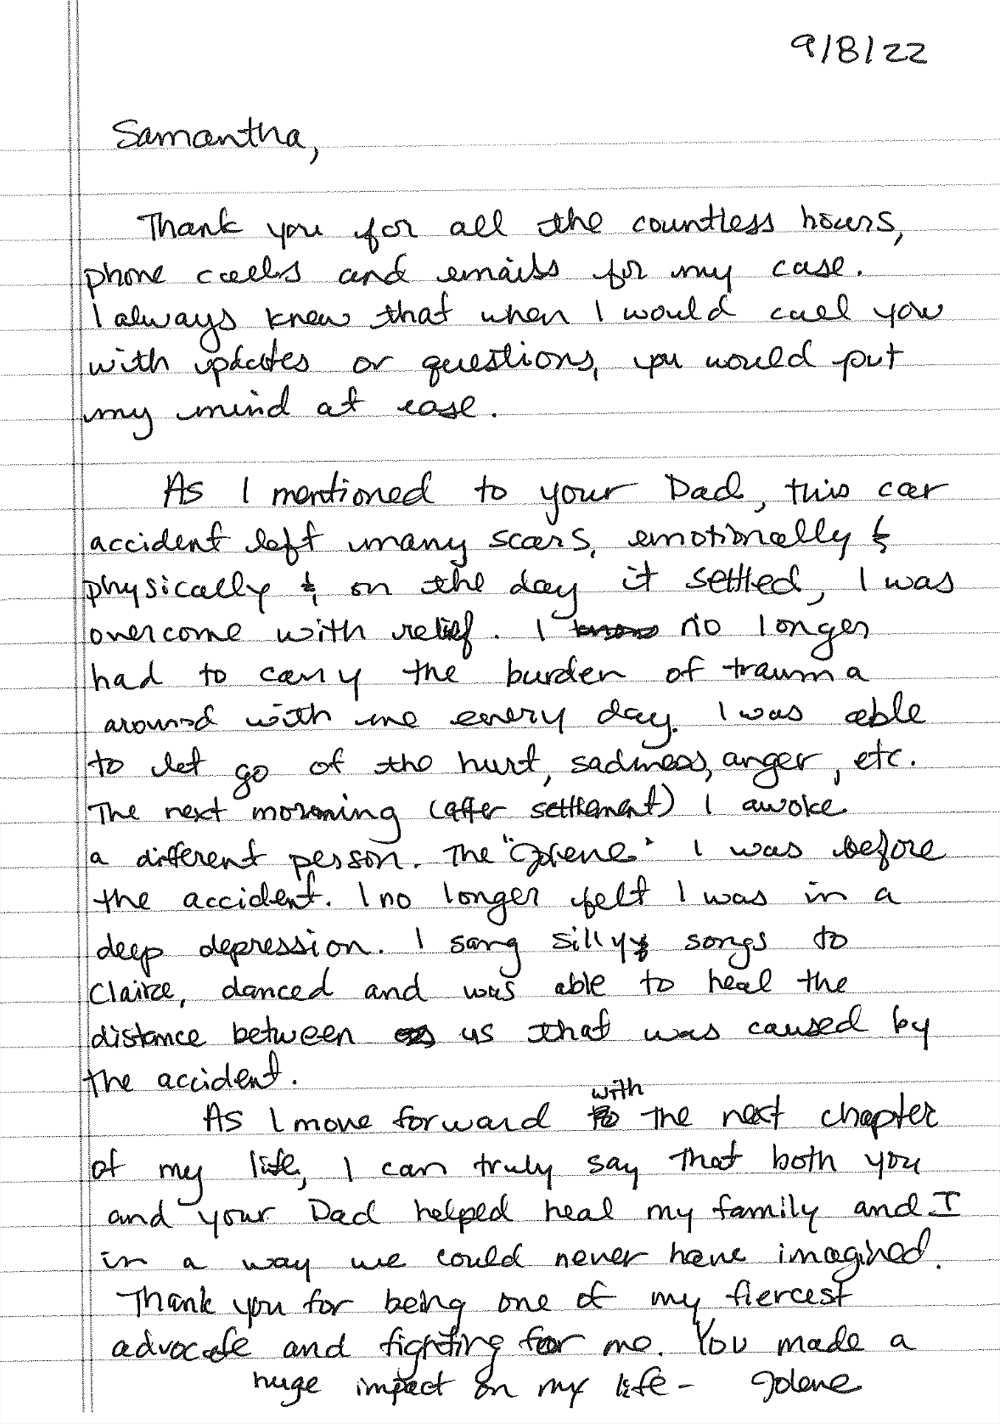 9/8/22
Samantha,
Thank you for all the countless hours,
phone calls and emails for my case.
I always knew that when I would call you
with updates or questions, you would put
my mind at ease.
As I mentioned to your Dad, this car
accident left many scars, emotionally &
physically & on the day it settled, I was
overcome with relief. I no longer
had to carry the burden of trauma
around with me every day. I was able
to let go of the hurt, sadness, anger, etc.
The next morning (after settlement) I awoke
a different person. The "Jolene" I was before
the accident. I no longer felt I was in a
deep depression. I sang silly songs to
Claire, danced and was able to heal the
distance between us that was caused by
the accident.
As I move forward with the next chapter
of my life, I can truly say that both you
and your Dad helped heal my family and I
in a way we could never have imagined.
Thank you for being one of my fiercest
advocate and fighting for me. You made a
huge impact on my life - Jolene